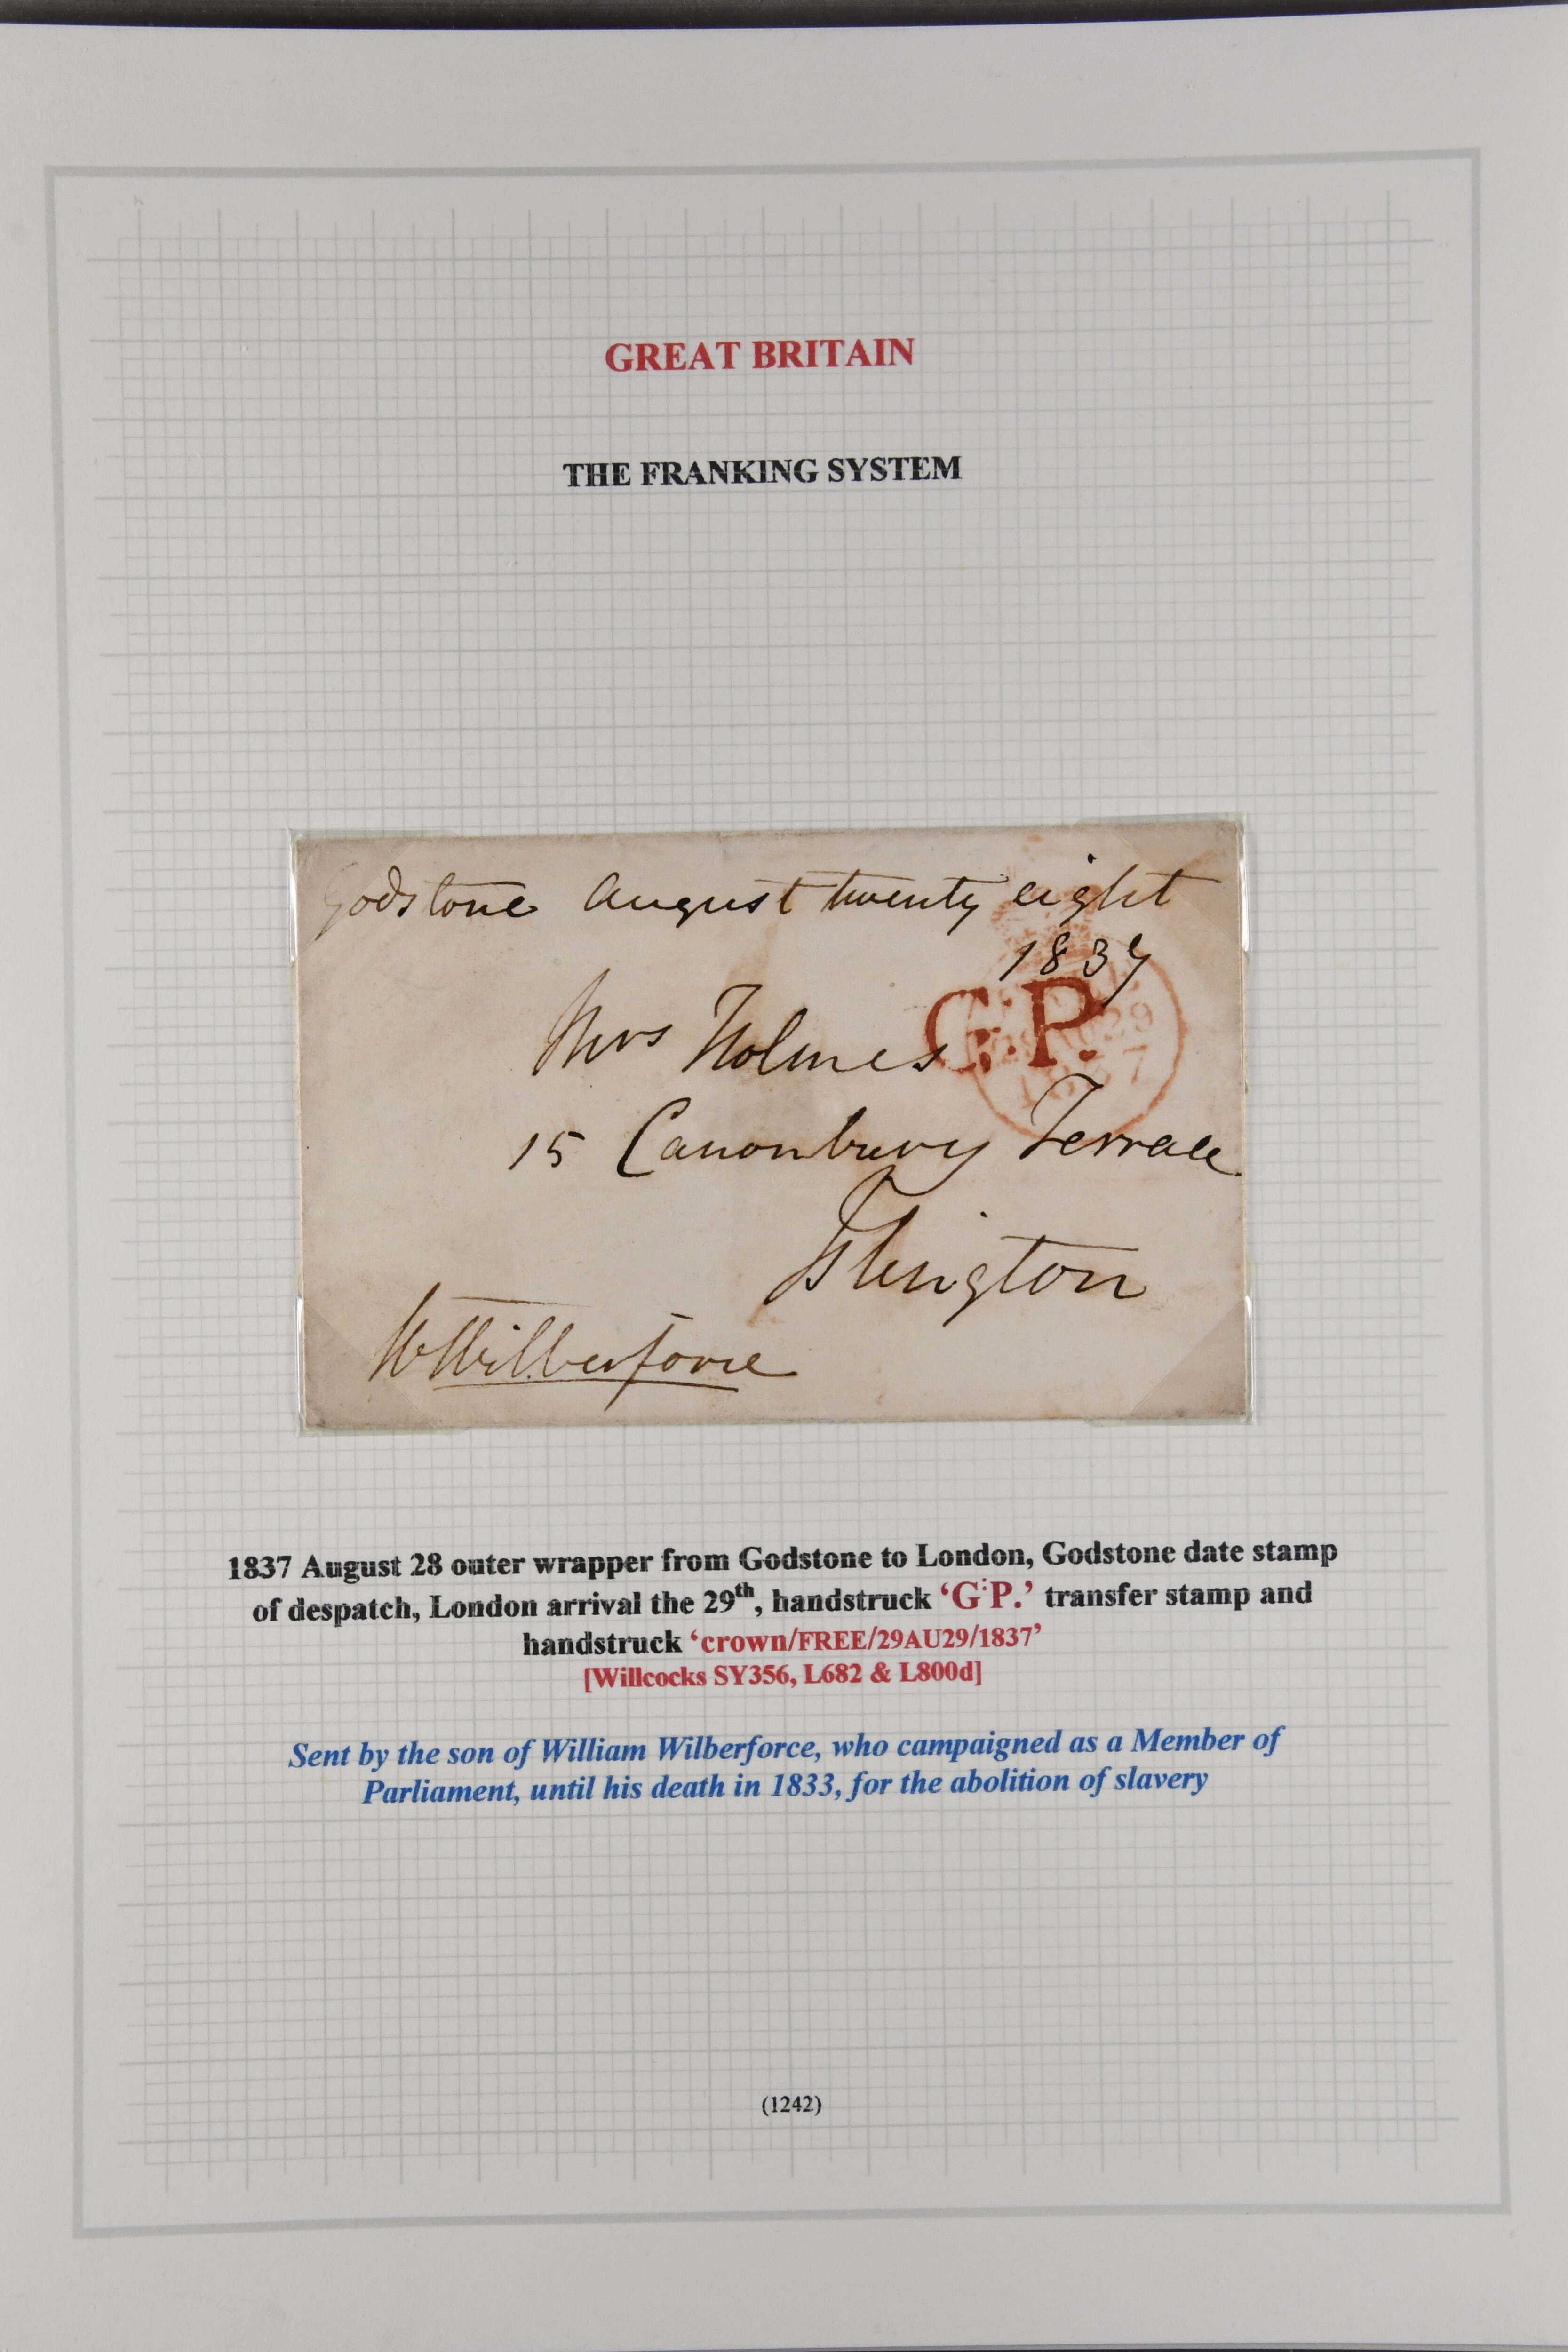 GREAT BRITAIN
THE FRANKING SYSTEM
Godstone August twenty eight
1837
G.P.
Mrs Holmes
15 Canonbury Terrace
Islington
W Wilberforce
1837 August 28 outer wrapper from Godstone to London, Godstone date stamp
of despatch, London arrival the 29th, handstruck ‘G:P.’ transfer stamp and
handstruck ‘crown/FREE/29AU29/1837’
[Willcocks SY356, L682 & L800d]
Sent by the son of William Wilberforce, who campaigned as a Member of
Parliament, until his death in 1833, for the abolition of slavery
(1242)